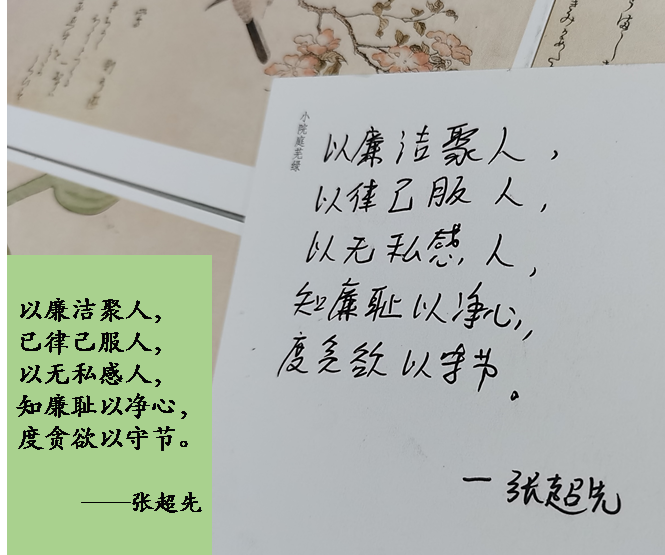 小院庭芜绿
以廉洁聚人，
以律己服人，
以无私感人，
知廉耻以净心，
度贪欲以守节。
一张超先
以廉洁聚人，
已律己服人，
以无私感人，
知廉耻以净心，
度贪欲以守节。
——张超先